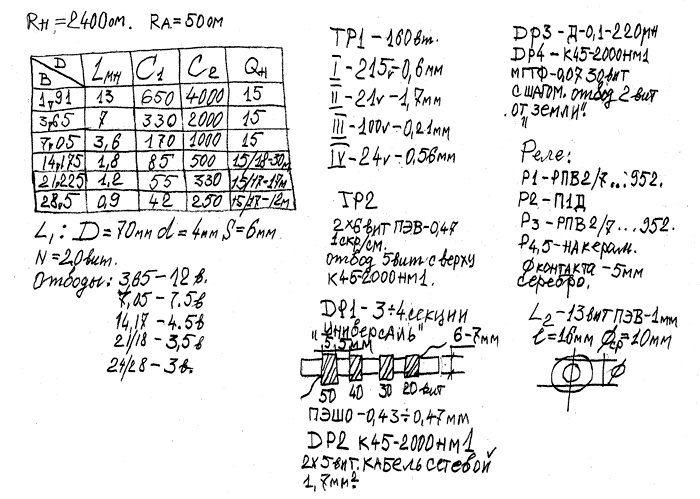 Rн=2400 ом. RA=50 ом
D B Lмн C1 C2 Qн
1,91 13 650 4000 15
3,65 7 330 2000 15
7,05 3,6 170 1000 15
14,175 1,8 85 500 15/18-30м
21,225 1,2 55 330 15/17-17м
28,5 0,9 42 250 15/17-12м
L1: D=70мм d=4мм, S=6мм.
N=20вит.
Отводы: 3,65-12 в.
7,05-7.5в
14,17-4.5в
21/18-3,5в
24/28-3в.
ТР1-160вт.
I-215v-0,6мм
II-21v-1,7мм
III-100v-0,21мм
IV-24v-0,56мм
ТР2
2×6 вит ПЭВ-0,47
1скр/см.
отвод 5вит с верху
К45-2000НМ1.
DР1-3÷4 секции
"универсаль"
5,5мм 6-7мм
50 40 30 20 вит
ПЭШО-0,43÷0,47мм
DР2 К45-2000НМ1
2×5 вит. кабель сетевой
1,7мм²
DР3-Д-0,1-220μН
DР4-К45-2000НМ1
МГТФ-0,07 30вит
с шагом. отвод 2 вит
от "земли".
Реле:
Р1-РПВ2/7...952.
Р2-П1Д
Р3-РПВ2/7...952.
Р4,5-на керам.
Ф контакта-5мм
серебро.
L2-13вит ПЭВ-1мм
ℓ=16мм Фср=20мм
Ф